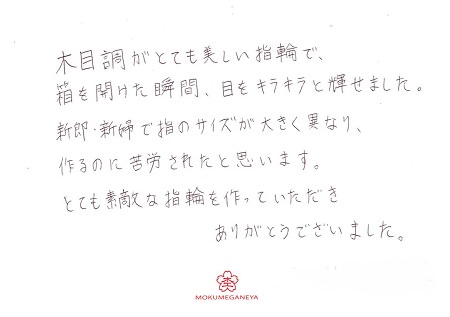 木目調がとても美しい指輪で、
箱を開けた瞬間、目をキラキラと輝せました。
新郎・新婦で指のサイズが大きく異なり、
作るのに苦労されたと思います。
とても素敵な指輪を作っていただき
ありがとうございました。
MOKUMEGANEYA